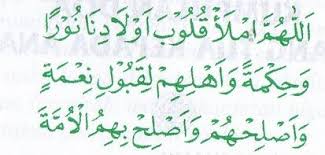 اَللّٰهُمَّ امْلَأْ قُلُوْبَ اَوْلَادِنَا نُوْرًا
وَحِكْمَةً وَاَهْلِهِمْ لِقَبُوْلِ نِعْمَةٍ
وَاَصْلِحْهُمْ وَاَصْلِحْ بِهِمُ الْاُمَّةَ